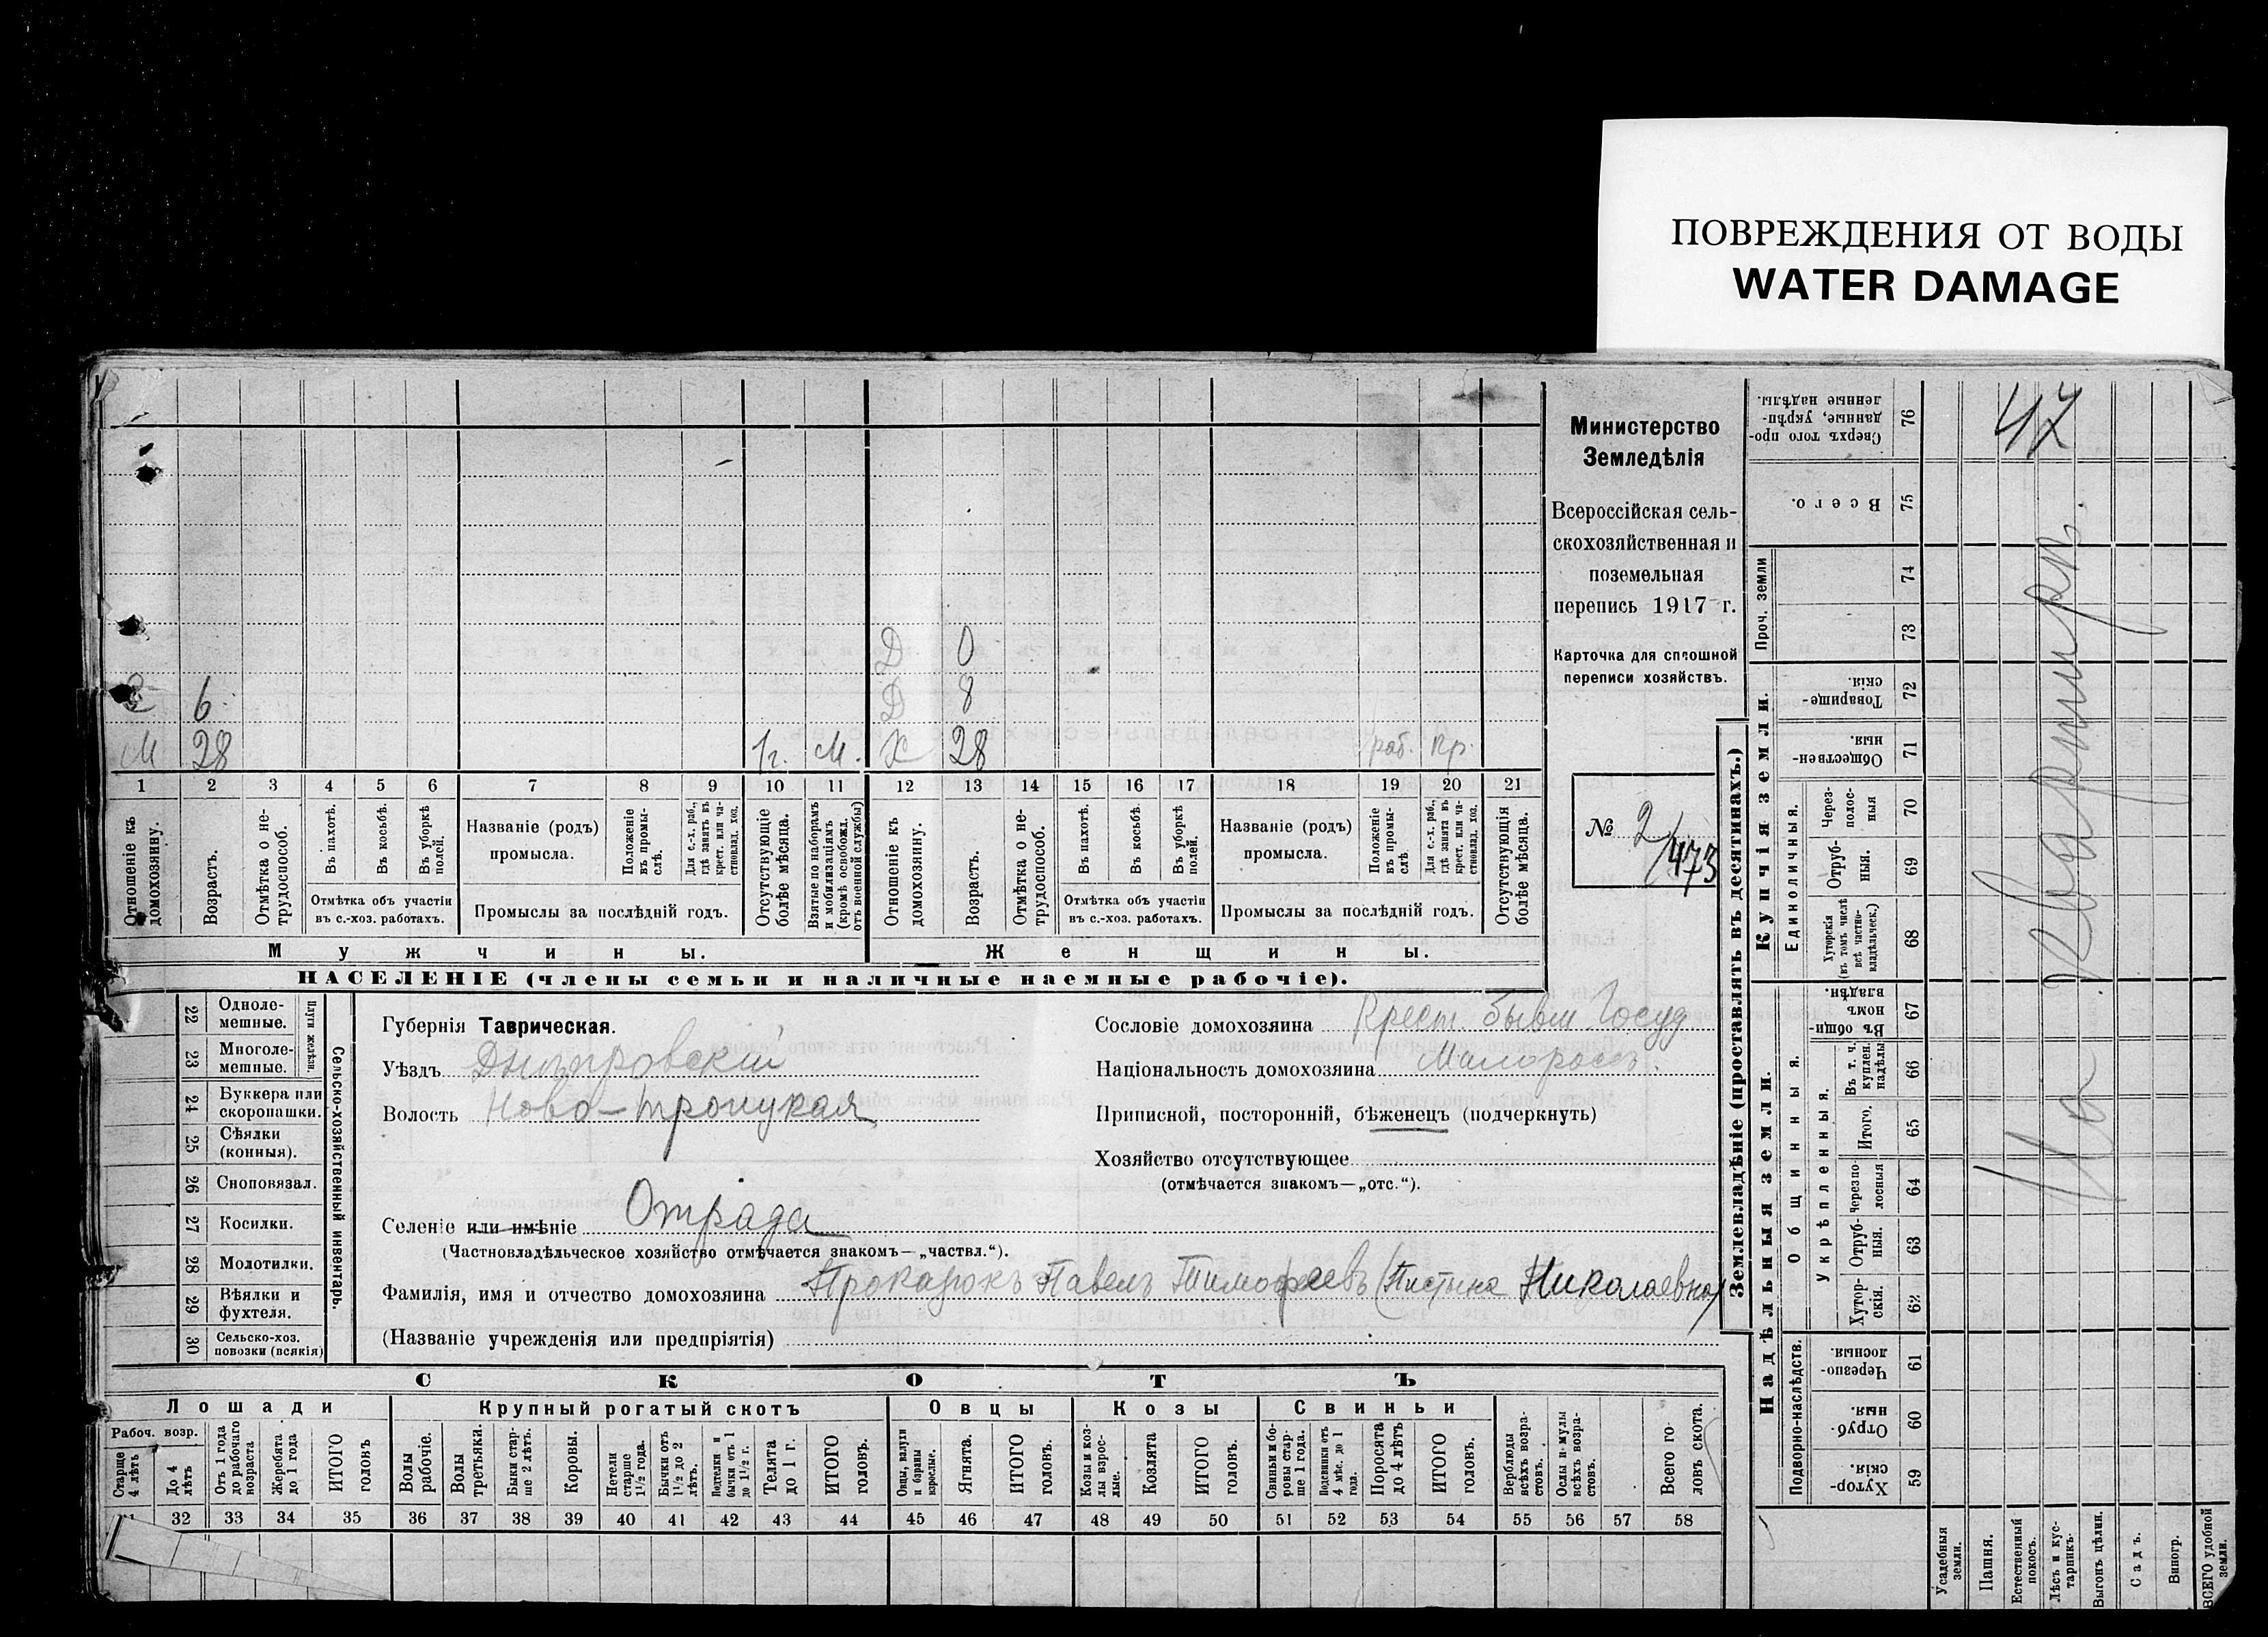 ПОВРЕЖДЕНИЯ ОТ ВОДЫ
WATER DAMAGE
Д 0
С 6. Д 8
М 28 1г. М. Х 28 раб. кр.
1 2 3 4 5 6 7 8 9 10 11 12 13 14 15 16 17 18 19 20 21
Отношеніе къ домохозяину.
Возрастъ.
Отмѣтка о нетрудоспособ.
Въ пахотѣ.
Въ косьбѣ.
Въ уборкѣ полей.
Отмѣтка объ участіи въ с.-хоз. работахъ.
Названіе (родъ) промысла.
Положеніе въ промыслѣ.
Для с.-х. раб., гдѣ занятъ въ крест. или частновлад. хоз.
Промыслы за послѣдній годъ.
Отсутствующіе болѣе мѣсяца.
Взятые по наборамъ и мобилизаціямъ (кромѣ освобожд. отъ военной службы)
Отношеніе къ домохозяину.
Возрастъ.
Отмѣтка о нетрудоспособ.
Въ пахотѣ.
Въ косьбѣ.
Въ уборкѣ полей.
Отмѣтка объ участіи въ с.-хоз. работахъ.
Названіе (родъ) промысла.
Положеніе въ промыслѣ.
Для с.-х. раб., гдѣ занята въ крест. или частновлад. хоз.
Промыслы за послѣдній годъ.
Отсутствующія болѣе мѣсяца.
Мужчины. Женщины.
НАСЕЛЕНІЕ (члены семьи и наличные наемные рабочіе).
Министерство
Земледѣлія
Всероссійская сель-
скохозяйственная и
поземельная
перепись 1917 г.
Карточка для сплошной
переписи хозяйствъ.
№ 2/473
22 Однолемешные.
23 Многолемешные.
Плуги желѣзн.
24 Буккера или скоропашки.
25 Сѣялки (конныя).
26 Сноповязал.
27 Косилки.
28 Молотилки.
29 Вѣялки и фухтеля.
30 Сельско-хоз. повозки (всякія)
Сельско-хозяйственный инвентарь.
Губернія Таврическая.
Уѣздъ Днѣпровскій
Волость Ново-Троицкая
Селеніе или имѣніе Отрада
(Частновладѣльческое хозяйство отмѣчается знакомъ—„частвл.“).
Фамилія, имя и отчество домохозяина Павелъ Тимофеевъ Николаевна)
(Названіе учрежденія или предпріятія)
Сословіе домохозяина Крест. бывш Госуд
Національность домохозяина Малороссъ.
Приписной, посторонній, бѣженецъ (подчеркнуть)
Хозяйство отсутствующее
(отмѣчается знакомъ—„отс.“).
СКОТЪ
Лошади Крупный рогатый скотъ Овцы Козы Свиньи
Рабоч. возр.
Старше 4 лѣтъ
До 4 лѣтъ
Отъ 1 года до рабочаго возраста
Жеребята до 1 года
ИТОГО головъ
Волы рабочіе.
Волы третьяки.
Быки старше 2 лѣтъ.
Коровы.
Нетели старше 1½ года.
Бычки отъ 1½ до 2 лѣтъ.
Подтелки и бычки отъ 1 до 1½ г.
Телята до 1 г.
ИТОГО головъ.
Овцы, валухи и бараны взрослые.
Ягнята.
ИТОГО головъ.
Козы и козлы взрослые.
Козлята
ИТОГО головъ.
Свиньи и боровы старше 1 года.
Подсвинки отъ 4 мѣс. до 1 года.
Поросята до 4 лѣтъ
ИТОГО головъ.
Верблюды всѣхъ возрастовъ.
Ослы и мулы всѣхъ возрастовъ.
Всего головъ скота.
32 33 34 35 36 37 38 39 40 41 42 43 44 45 46 47 48 49 50 51 52 53 54 55 56 57 58
Землевладѣніе (проставлять въ десятинахъ.)
Сверхъ того проданные, укрѣпленные надѣлы. 76
Всего. 75
Проч. земли 74 73
Купчія земли.
Товарищескія. 72
Общественныя. 71
Единоличныя.
Черезполосныя 70
Отрубныя. 69
Хуторскія (въ томъ числѣ всѣ частновладѣльческ.) 68
Надѣльныя земли.
Общинныя.
Въ общинномъ владѣн. 67
Укрѣпленныя.
Въ т. ч. куплен. надѣлы 66
Итого. 65
Черезполосныя 64
Отрубныя. 63
Хуторскія. 62
Подворно-наслѣдств.
Черезполосныя 61
Отрубныя. 60
Хуторскія. 59
Усадебныя земли.
Пашня.
Естественный покосъ.
Лѣсъ и кустарникъ.
Выгонъ цѣлин.
Садъ.
Виногр.
ВСЕГО удобной земли.
47
На квартирѣ.